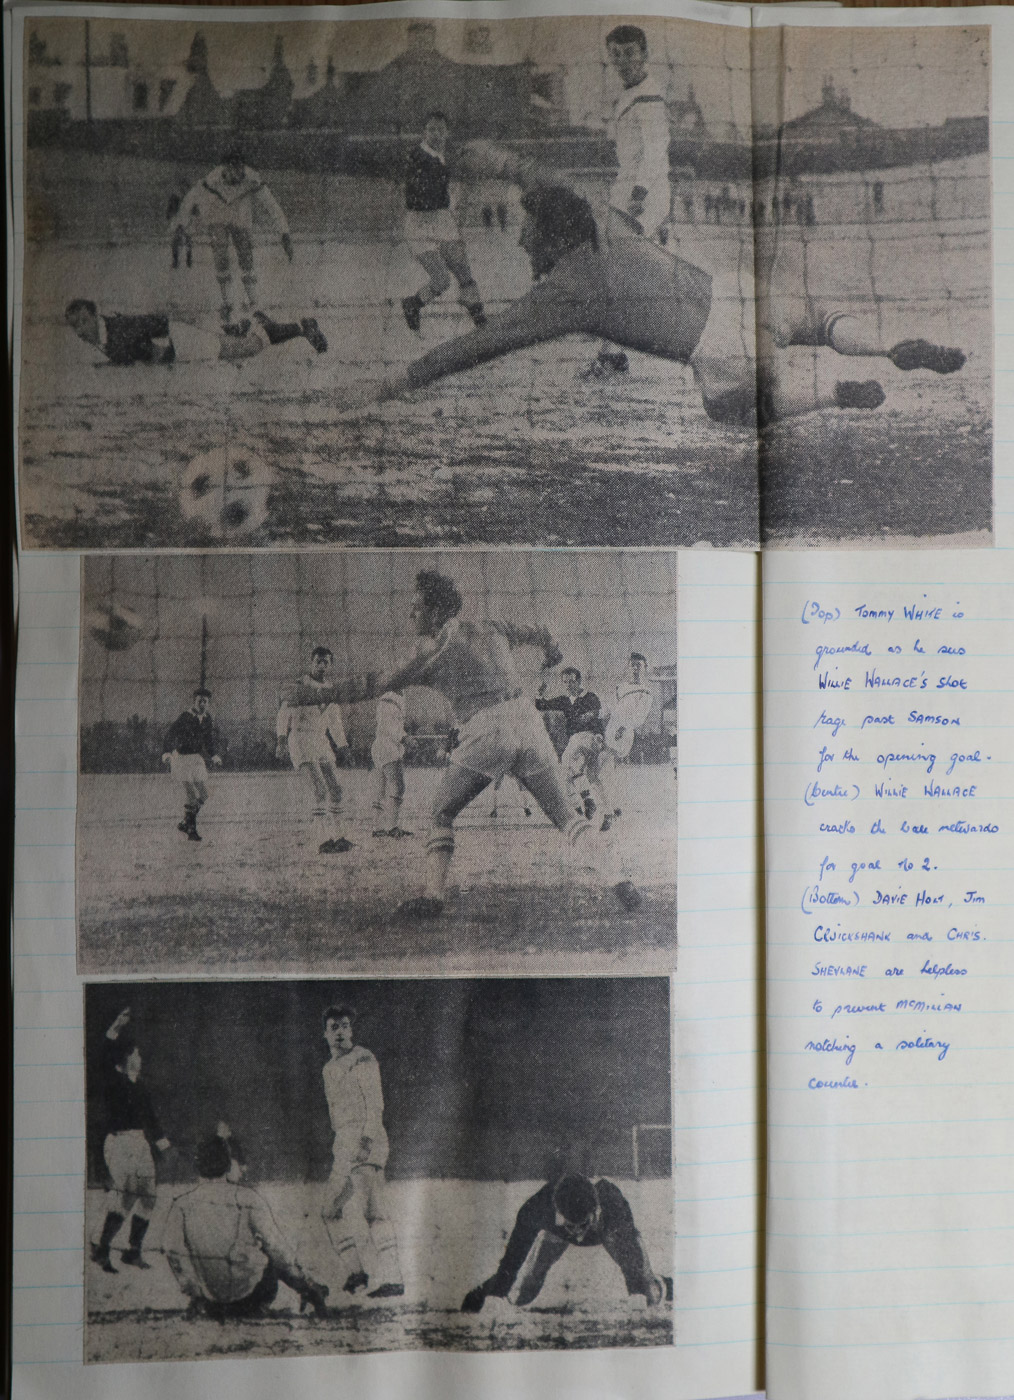 (Top) Tommy WHITE is
grounded as he sees
WILLIE WALLACE'S shot
rage past SAMSON
for the opening goal.
(Centre) WILLIE WALLACE
cracks the ball netwards
for goal No 2.
(Bottom) DAVIE HOLT, Jim
CRUICKSHANK and CHRIS.
SHEVLANE are helpless
to prevent McMILLAN
notching a solitary
counter.